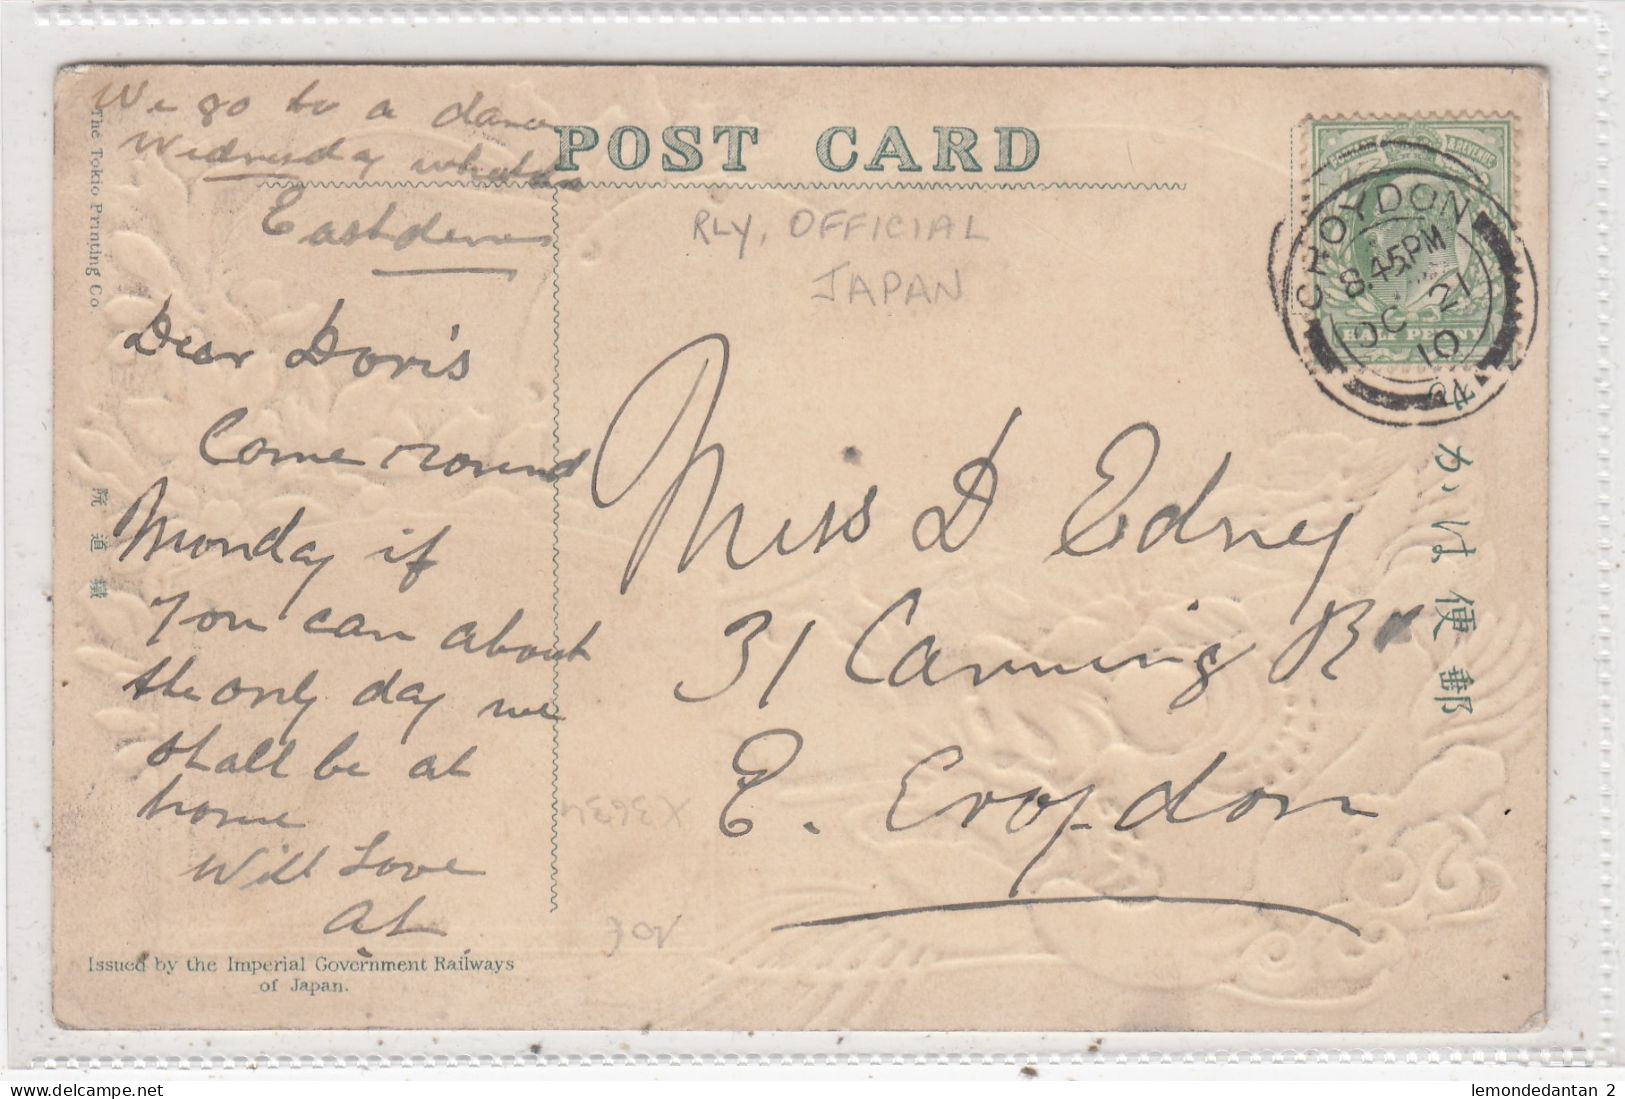 We go to a dance
Wednesday
POST CARD
The Tokio Printing Co.
RLY, OFFICIAL
JAPAN
CROYDON
8.45PM
OC 21
10
Dear Doris
Come round
Monday if
you can about
the only day we
shall be at
home
With Love
Miss D Edney
31 Canning Rd
E. Croydon
きかは便郵
院道鐵
X3634
Issued by the Imperial Government Railways
of Japan.
lemondedantan 2